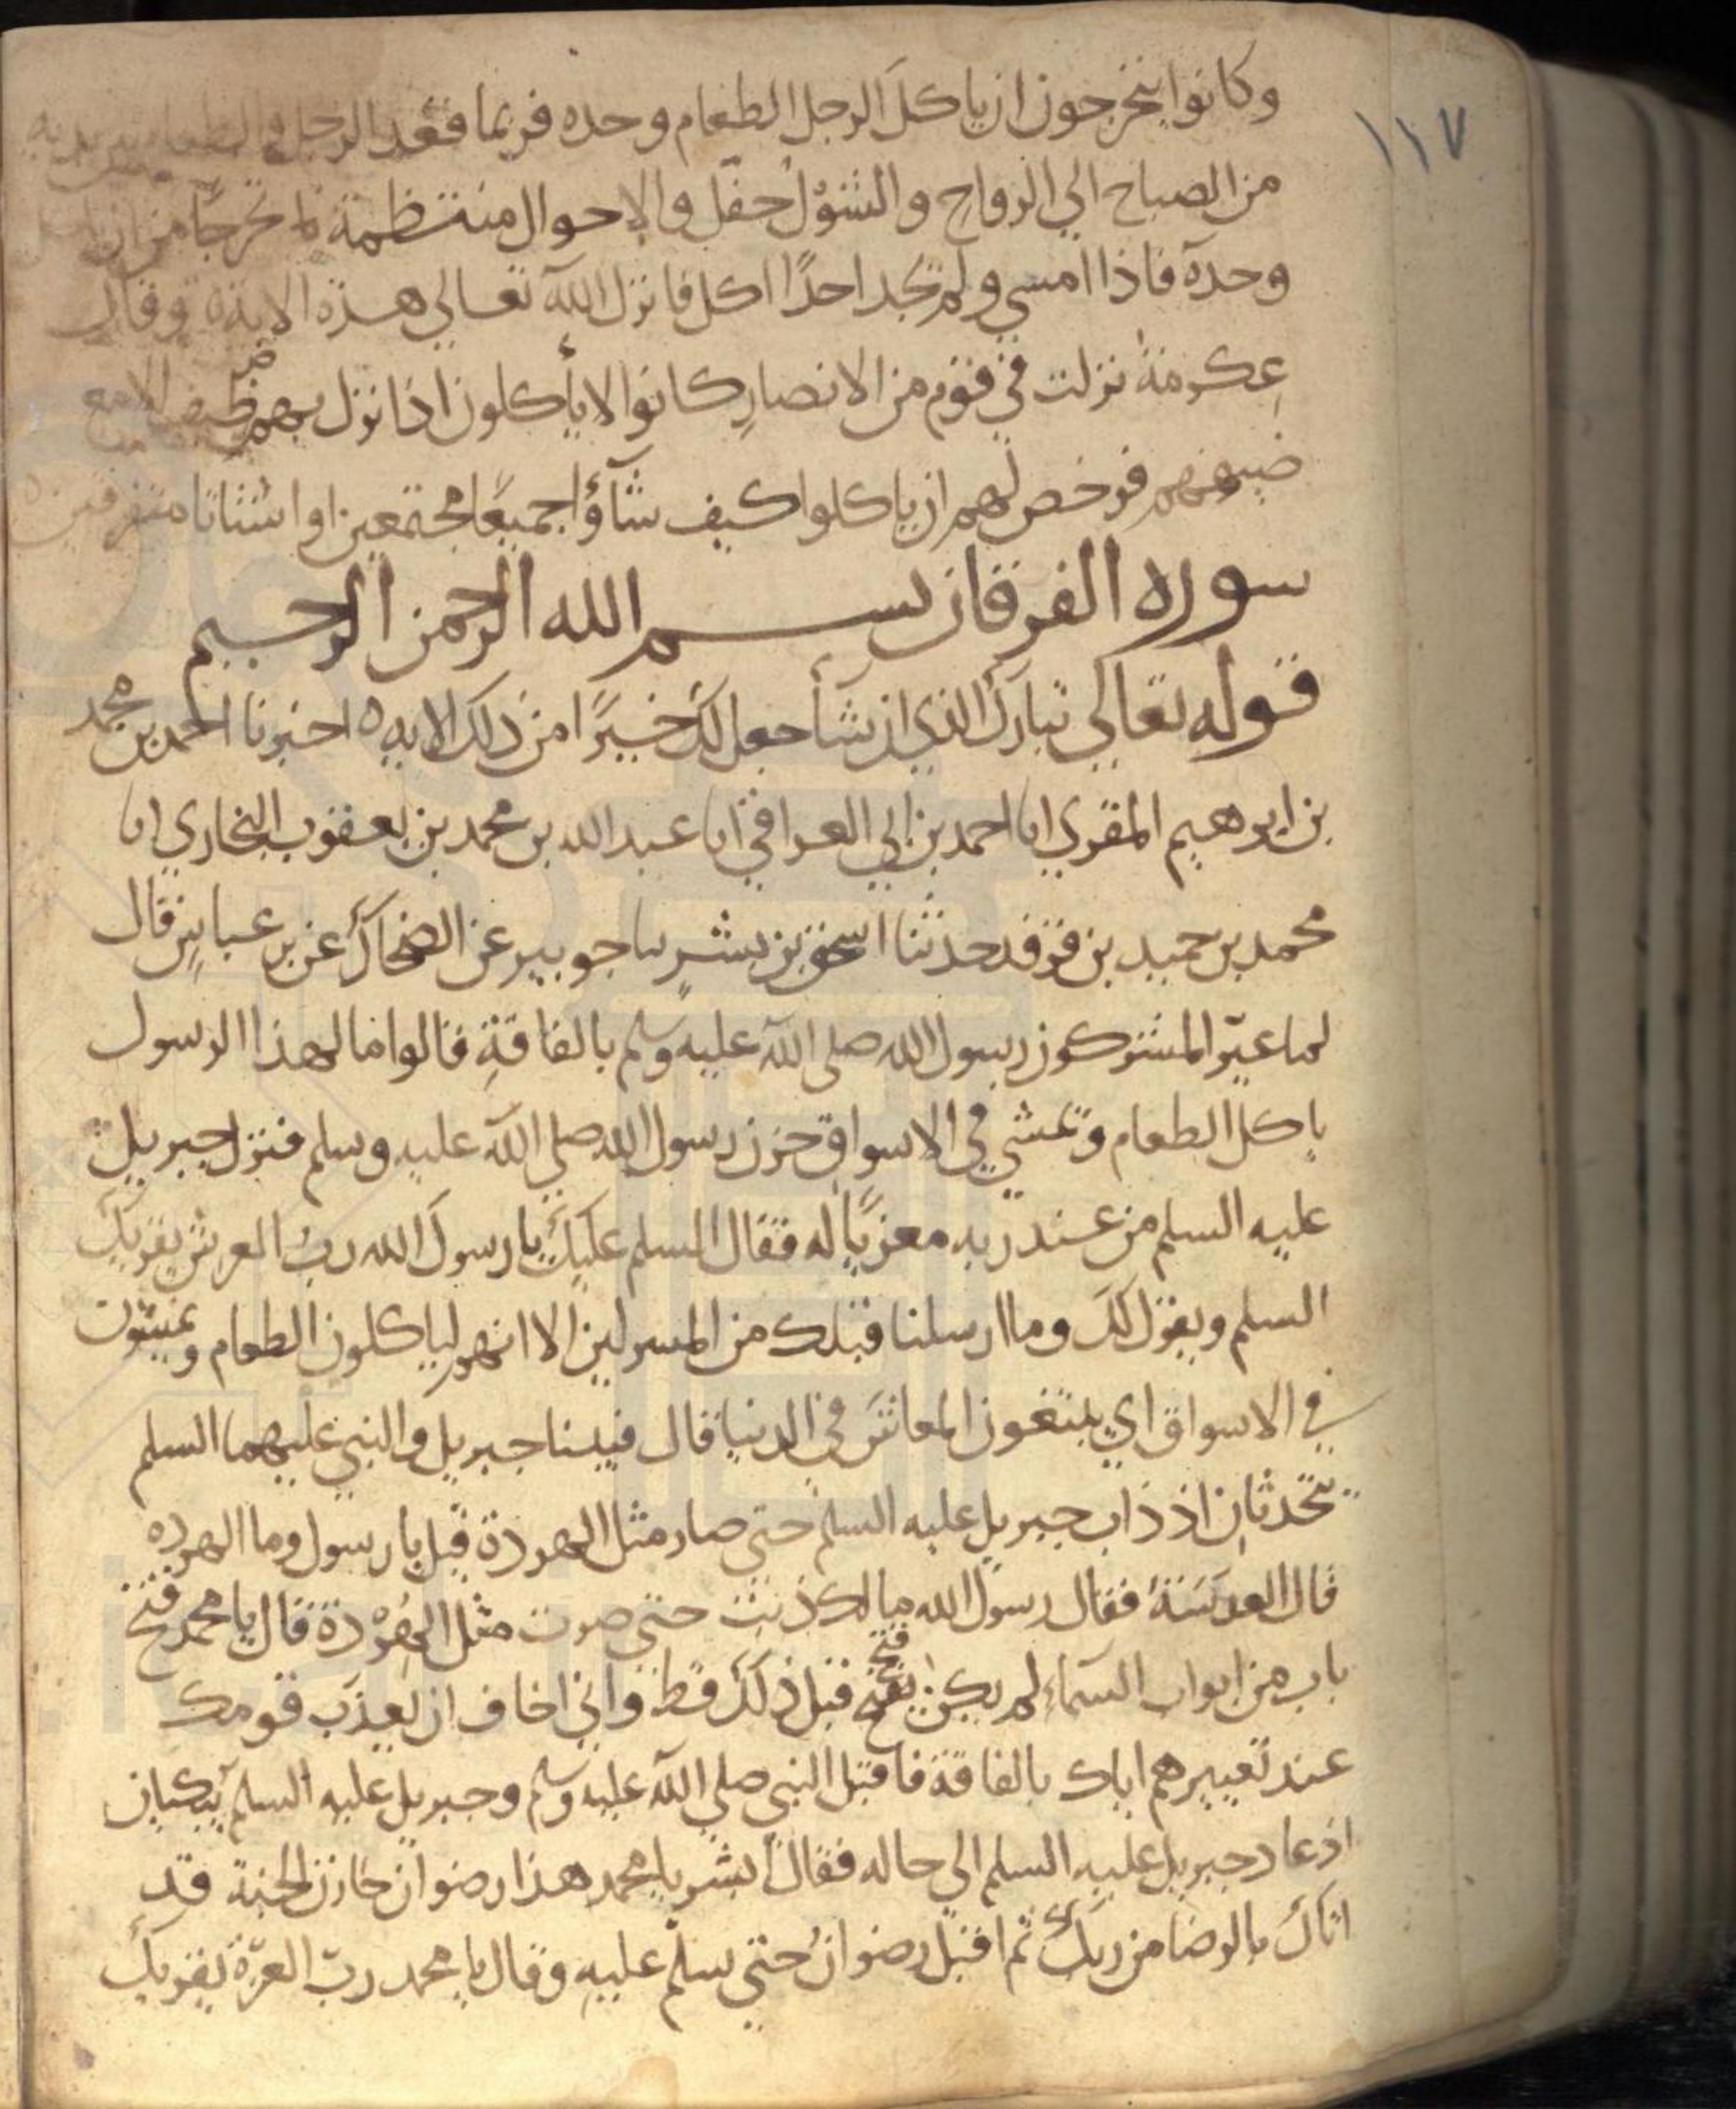 ١١٧
وكانوا يتحرجون ان ياكل الرجل الطعام وحده فربما قعد الرجل و الطعام بين يديه
من الصباح الي الرواح والشول حفل والاحوال منتظمة تحرجا من ان ياكل
وحده فاذا امسي ولم يجد احدًا اكل فانزل الله تعالي هذه الاية وقال
عكرمة نزلت في قوم من الانصار كانوا لا يأكلون اذا نزل بهم ضيف الا مع
ضيفهم فرخص لهم ان ياكلوا كيف شآؤا جميعًا مجتمعين او اشتاتا متفرقين ه
سوره الفرقان بسم الله الرحمن الرحيم
قوله تعالي تبارك الذي ان شأ جعل لك خيرًا من ذلك الايه ه اخبرنا احمد بن محمد
بن ابرهيم المقري انا احمد بن ابي العراقي انا عبد الله بن محمد بن يعقوب البخاري انا
محمد بن حميد بن فرقد حدثنا اسحق بن بشر نا جويبر عن الضحاك عن بن عباس قال
لما عيّر المشركون رسول الله صلى الله عليه وسلم بالفاقة قالوا ما لهذا الرسول
ياكل الطعام ويمشي في الاسواق حزن رسول الله صلي الله عليه وسلم فنزل جبريل
عليه السلم من عند ربه معزيًا له فقال السلم عليك يا رسول الله رب العرش يقريك
السلم ويقول لك وما ارسلنا قبلك من المرسلين الا انهم لياكلون الطعام ويمشون
في الاسواق اي يبتغون المعاش في الدنيا قال فبينا جبريل والنبي عليهما السلم
يتحدثان اذ ذاب جبريل عليه السلم حتي صار مثل الهردة قيل يا رسول وما الهرده
قال العدسة فقال رسول الله ما لك ذبت حتى صرت مثل الهُرْدة قال يا محمد فتح
باب من ابواب السماء لم يكن فتح قبل ذلك قط واني اخاف ان يعذب قومك
عند تعييرهم اياك بالفاقة فاقبل النبي صلي الله عليه وسلم وجبريل عليه السلم يبكيان
اذ عاد جبريل عليه السلم الي حاله فقال أبشر يا محمد هذا رضوان خازن الجنة قد
اتاك بالرضا من ربك ثم اقبل رضوان حتي سلّم عليه وقال يا محمد ربّ العزة يقريك